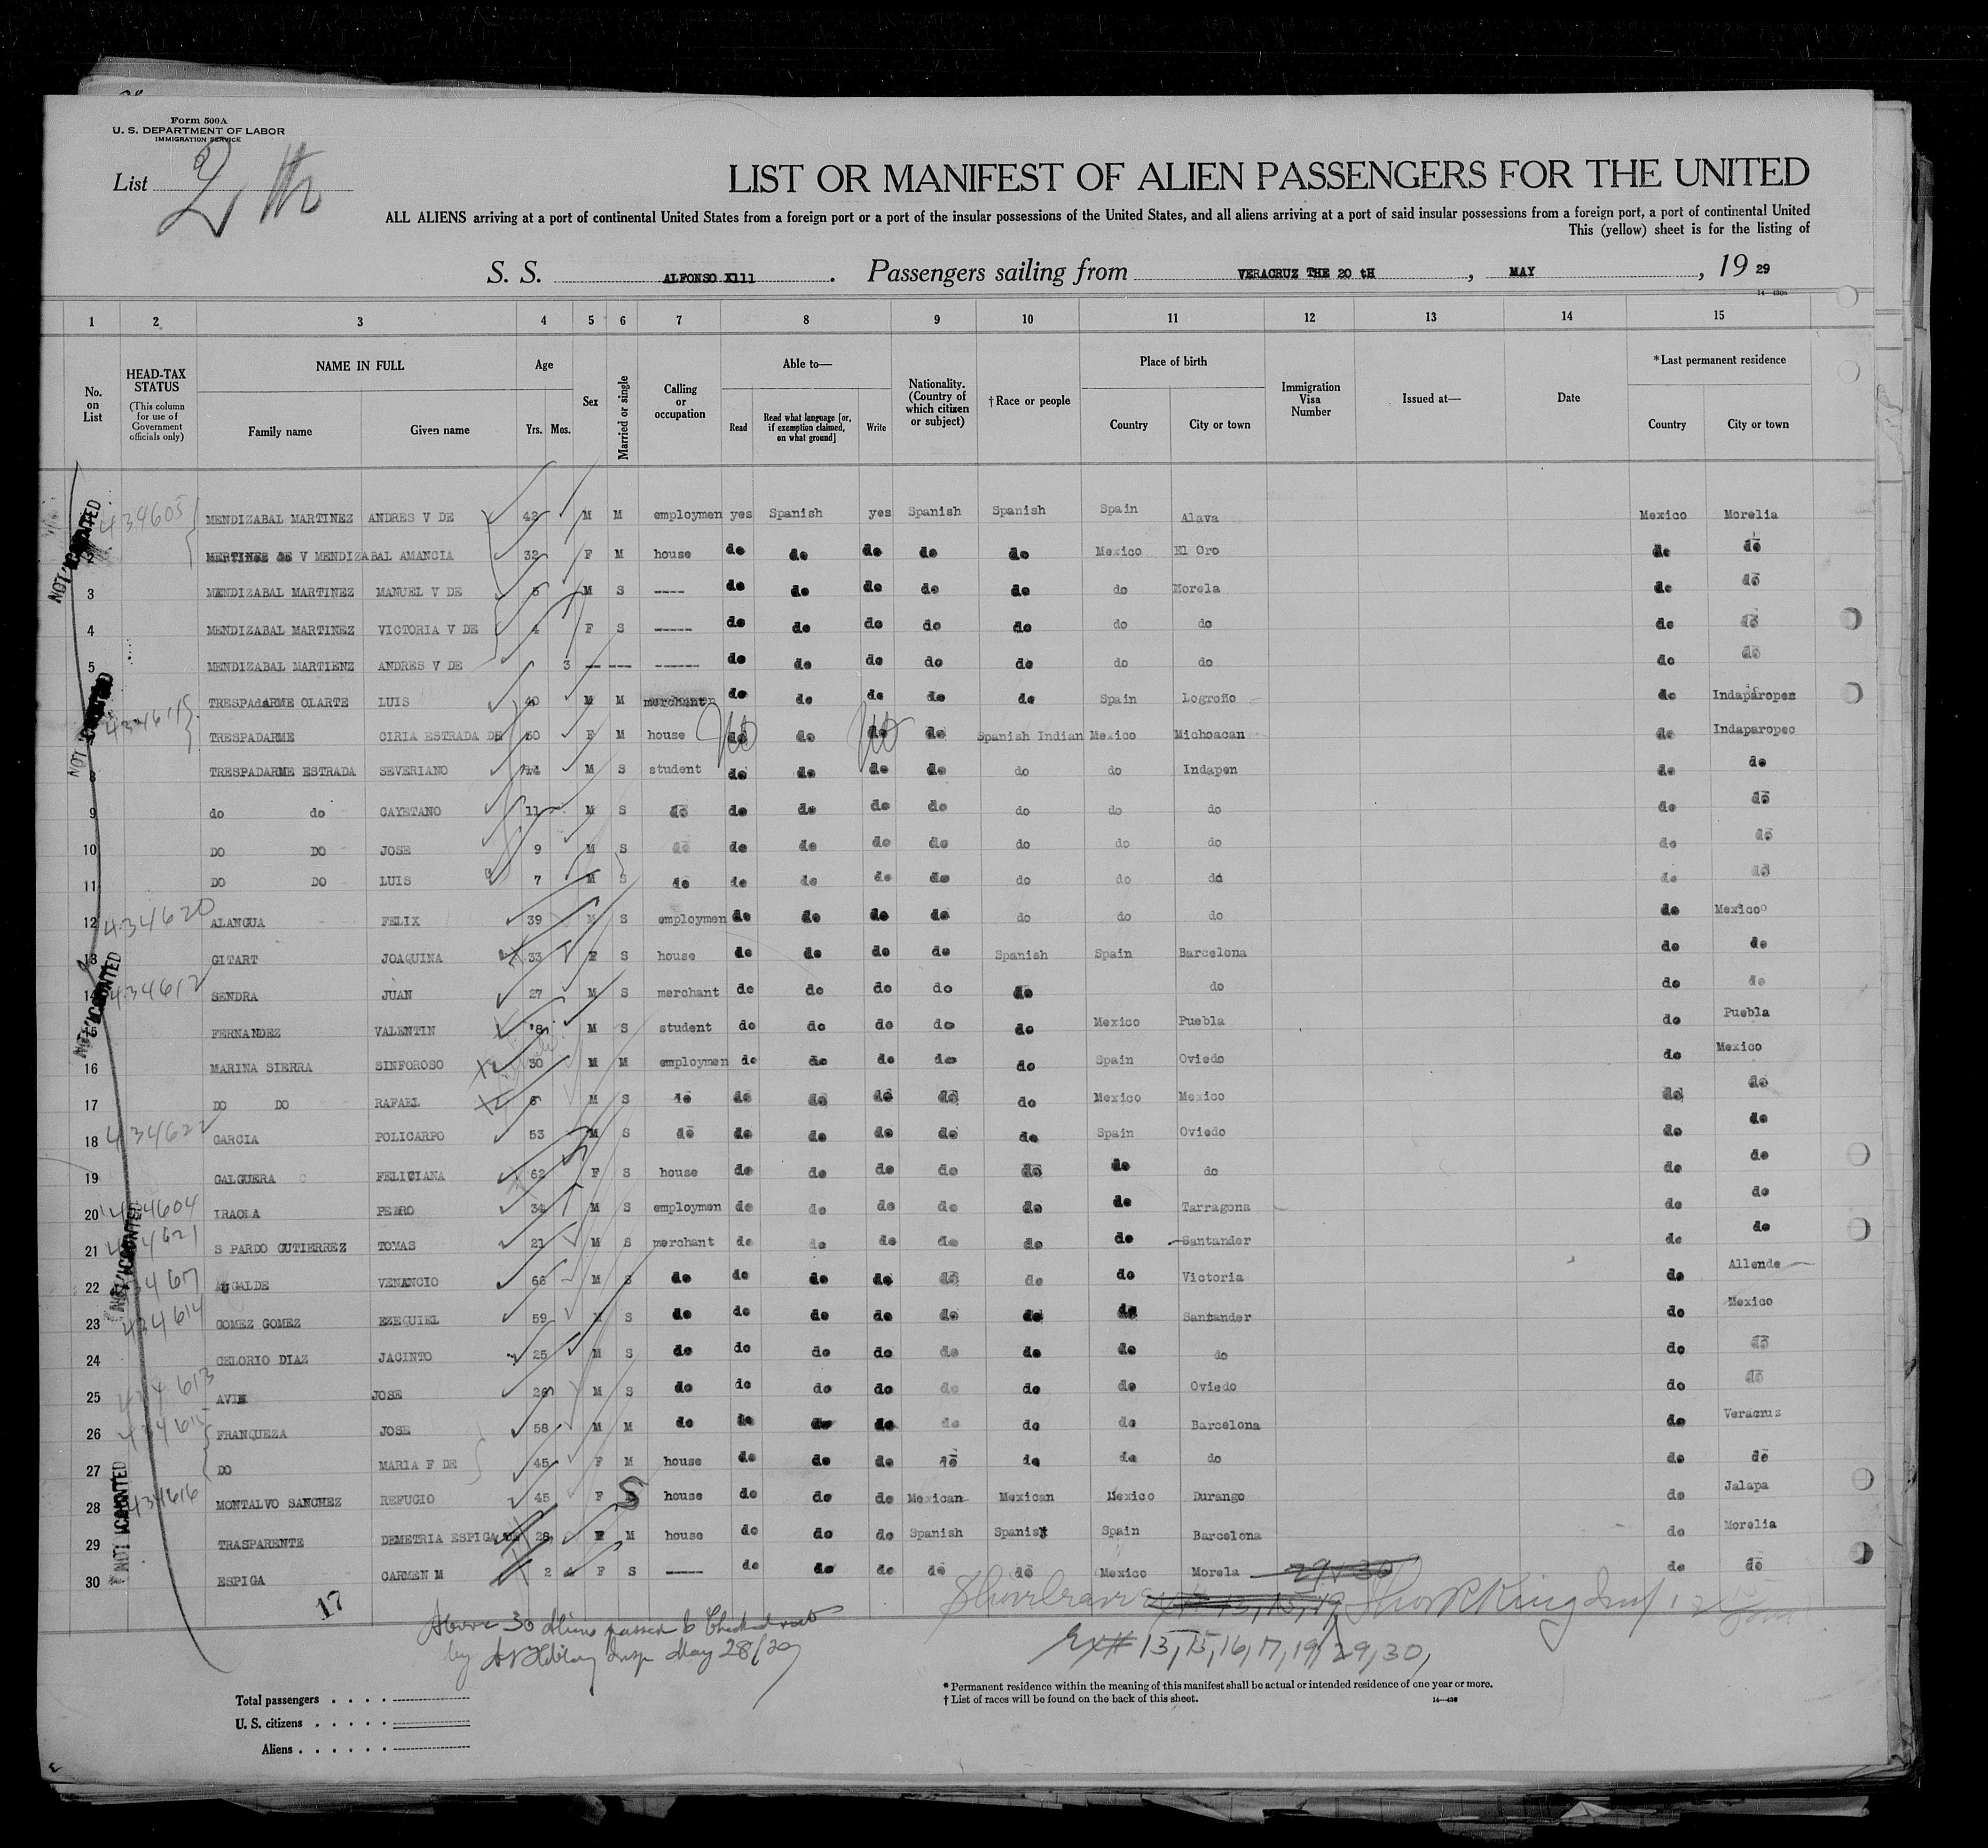 Form 500A
U. S. DEPARTMENT OF LABOR
IMMIGRATION SERVICE
List
LIST OR MANIFEST OF ALIEN PASSENGERS FOR THE UNITED
ALL ALIENS arriving at a port of continental United States from a foreign port or a port of the insular possessions of the United States, and all aliens arriving at a port of said insular possessions from a foreign port, a port of continental United
This (yellow) sheet is for the listing of
S. S. ALFONSO X111 . Passengers sailing from VERACRUZ THE 20 tH , MAY , 19 29
1 2 3 4 5 6 7 8 9 10 11 12 13 14 15
No. on List
HEAD-TAX STATUS (This column for use of Government officials only)
NAME IN FULL Family name Given name
Age Yrs. Mos.
Sex
Married or single
Calling or occupation
Able to— Read Read what language [or, if exemption claimed, on what ground] Write
Nationality. (Country of which citizen or subject)
†Race or people
Place of birth Country City or town
Immigration Visa Number
Issued at—
Date
*Last permanent residence Country City or town
434605 MENDIZABAL MARTINEZ ANDRES V DE 42 M M employmen yes Spanish yes Spanish Spanish Spain Alava Mexico Morelia
MERTINEZ DE V MENDIZABAL AMANCIA 32 F M house do do do do do Mexico El Oro do do
3 MENDIZABAL MARTINEZ MANUEL V DE 5 M S ---- do do do do do do Morela do do
4 MENDIZABAL MARTINEZ VICTORIA V DE 4 F S ----- do do do do do do do do do
5 MENDIZABAL MARTIENZ ANDRES V DE 3 -- --- ------ do do do do do do do do do
TRESPAdARME OLARTE LUIS 40 M M merchant do do do do do Spain Logroño do Indaparopez
TRESPADARME CIRIA ESTRADA DE 50 F M house do No do do No do Spanish Indian Mexico Michoacan do Indaparopec
8 TRESPADARME ESTRADA SEVERIANO 14 M S student do do do do do do Indapen do do
9 do do CAYETANO 11 M S do do do do do do do do do do
10 DO DO JOSE 9 M S do do do do do do do do do do
11 DO DO LUIS 7 M S do do do do do do do do do do
12 434620 ALANGUA FELIX 39 M S employmen do do do do do do do do Mexico
13 GITART JOAQUINA 33 F S house do do do do Spanish Spain Barcelona do do
14 434612 SENDRA JUAN 27 M S merchant do do do do do do do do
15 FERNANDEZ VALENTIN 18 M S student do do do do do Mexico Puebla do Puebla
16 MARINA SIERRA SINFOROSO 30 M M employmen do do do do do Spain Oviedo do Mexico
17 DO DO RAFAEL 6 M S do do do do do do Mexico Mexico do do
18 434622 GARCIA POLICARPO 53 M S do do do do do do Spain Oviedo do do
19 CALGUERA C FELICIANA 62 F S house do do do do do do do do do
20 434604 IRAOLA PEDRO 34 M S employmen do do do do do do Tarragona do do
21 S PARDO GUTIERREZ TOMAS 21 M S merchant do do do do do do Santander do do
22 UGALDE VENANCIO 66 M S do do do do do do do Victoria do Allende
23 434614 GOMEZ GOMEZ EZEQUIEL 59 M S do do do do do do do Santander do Mexico
24 CELORIO DIAZ JACINTO 25 M S do do do do do do do do do do
25 434613 AVIN JOSE 26 M S do do do do do do do Oviedo do do
26 434615 FRANQUEZA JOSE 58 M M do do do do do do do Barcelona do Veracruz
27 DO MARIA F DE 45 F M house do do do do do do do do do
28 434616 MONTALVO SANCHEZ REFUGIO 45 F S house do do do Mexican Mexican Mexico Durango do Jalapa
29 TRASPARENTE DEMETRIA ESPIGA DE 28 F M house do do do Spanish Spanish Spain Barcelona do Morelia
30 ESPIGA CARMEN M 2 4 F S ----- do do do do do Mexico Morela do do
NOT ICOUNTED
NOT ICOUNTED
NOT ICOUNTED
NOT ICOUNTED
NOT ICOUNTED
29 & 30
17
Above 30 Aliens passed &
by Insp May 28/29
Ex# 13, 15, 16, 17, 19, 29, 30,
* Permanent residence within the meaning of this manifest shall be actual or intended residence of one year or more.
† List of races will be found on the back of this sheet. 14—430
Total passengers . . . .
U. S. citizens . . . . .
Aliens . . . . . .